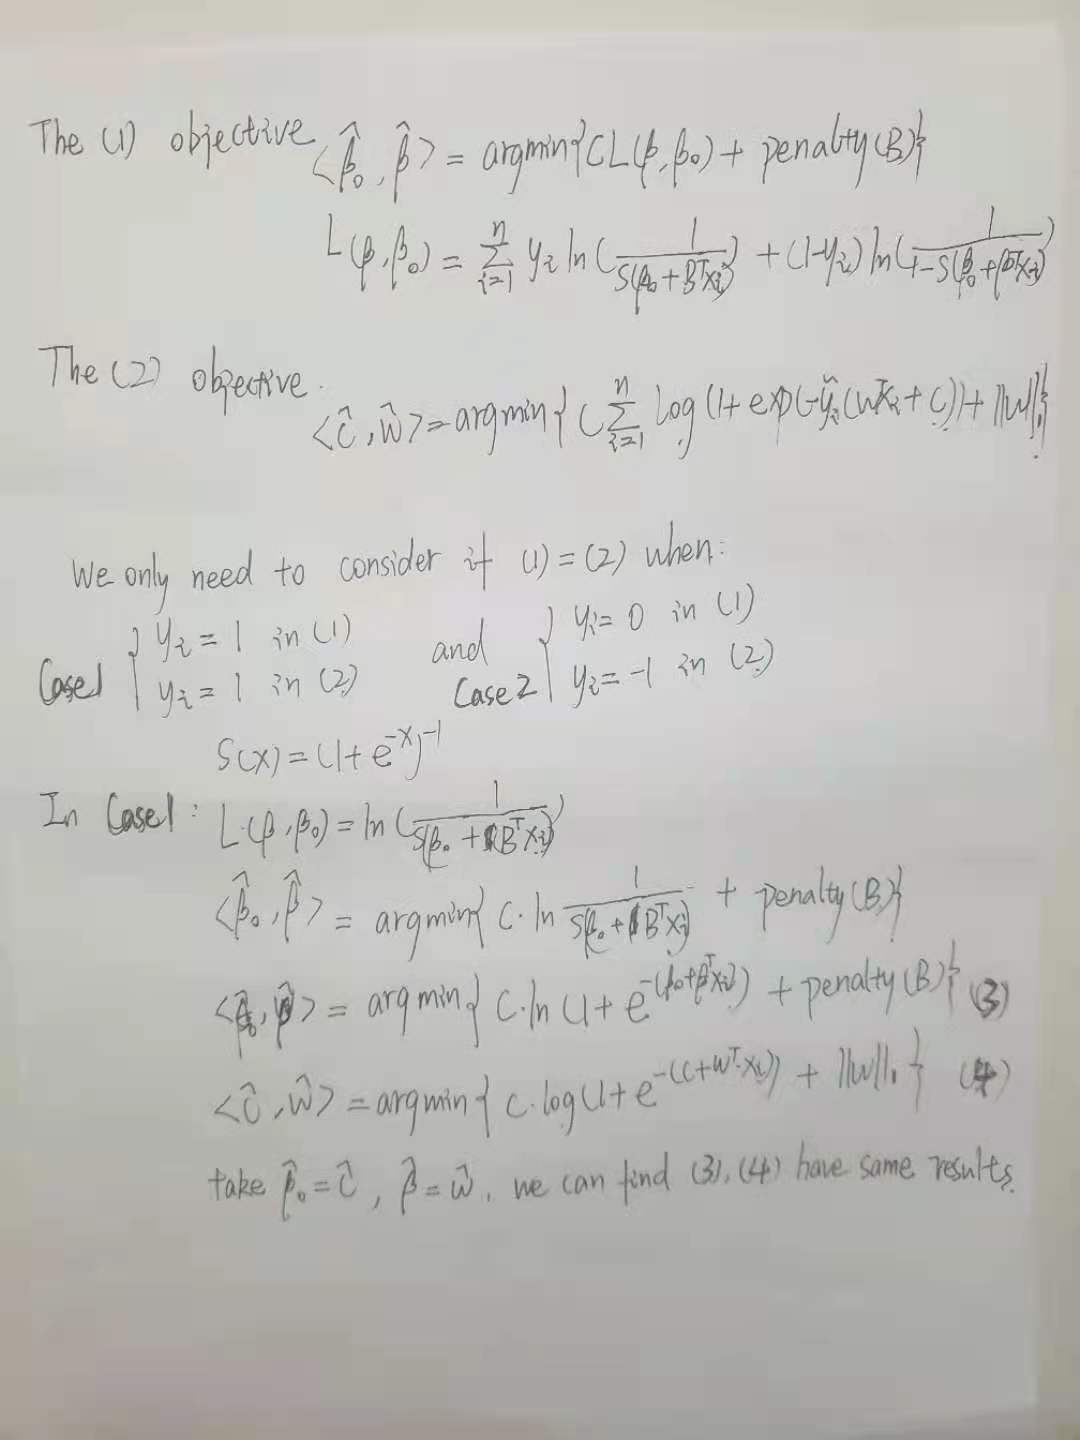 The (1) objective <β̂₀, β̂> = argmin{CL(β,β₀) + penalty(B)}
L(β,β₀) = Σⁿᵢ₌₁ yᵢ ln(1/S(β₀+BᵀXᵢ)) + (1-yᵢ) ln(1/1-S(β₀+βᵀXᵢ))
The (2) objective.
<ĉ, ŵ> = argmin{ C Σⁿᵢ₌₁ log(1+exp(-ỹᵢ(WᵀXᵢ+C))+ ||W||₁}
We only need to consider if (1) = (2) when:
Case1 { yᵢ = 1 in (1) and Case 2 { yᵢ = 0 in (1)
yᵢ = 1 in (2) yᵢ = -1 in (2)
S(x) = (1+e^-x)^-1
In Case1: L(β,β₀) = ln(1/S(β₀+BᵀXᵢ))
<β̂₀, β̂> = argmin{ C·ln 1/S(β₀+BᵀXᵢ) + penalty(B)}
<β̂₀, β̂> = argmin{ C·ln(1+e^-(β₀+βᵀXᵢ)) + penalty(B)} (3)
<ĉ, ŵ> = argmin{ C·log(1+e^-(C+Wᵀ·Xᵢ)) + ||W||₁ } (4)
take β̂₀ = ĉ, β̂ = ŵ, we can find (3), (4) have same results.